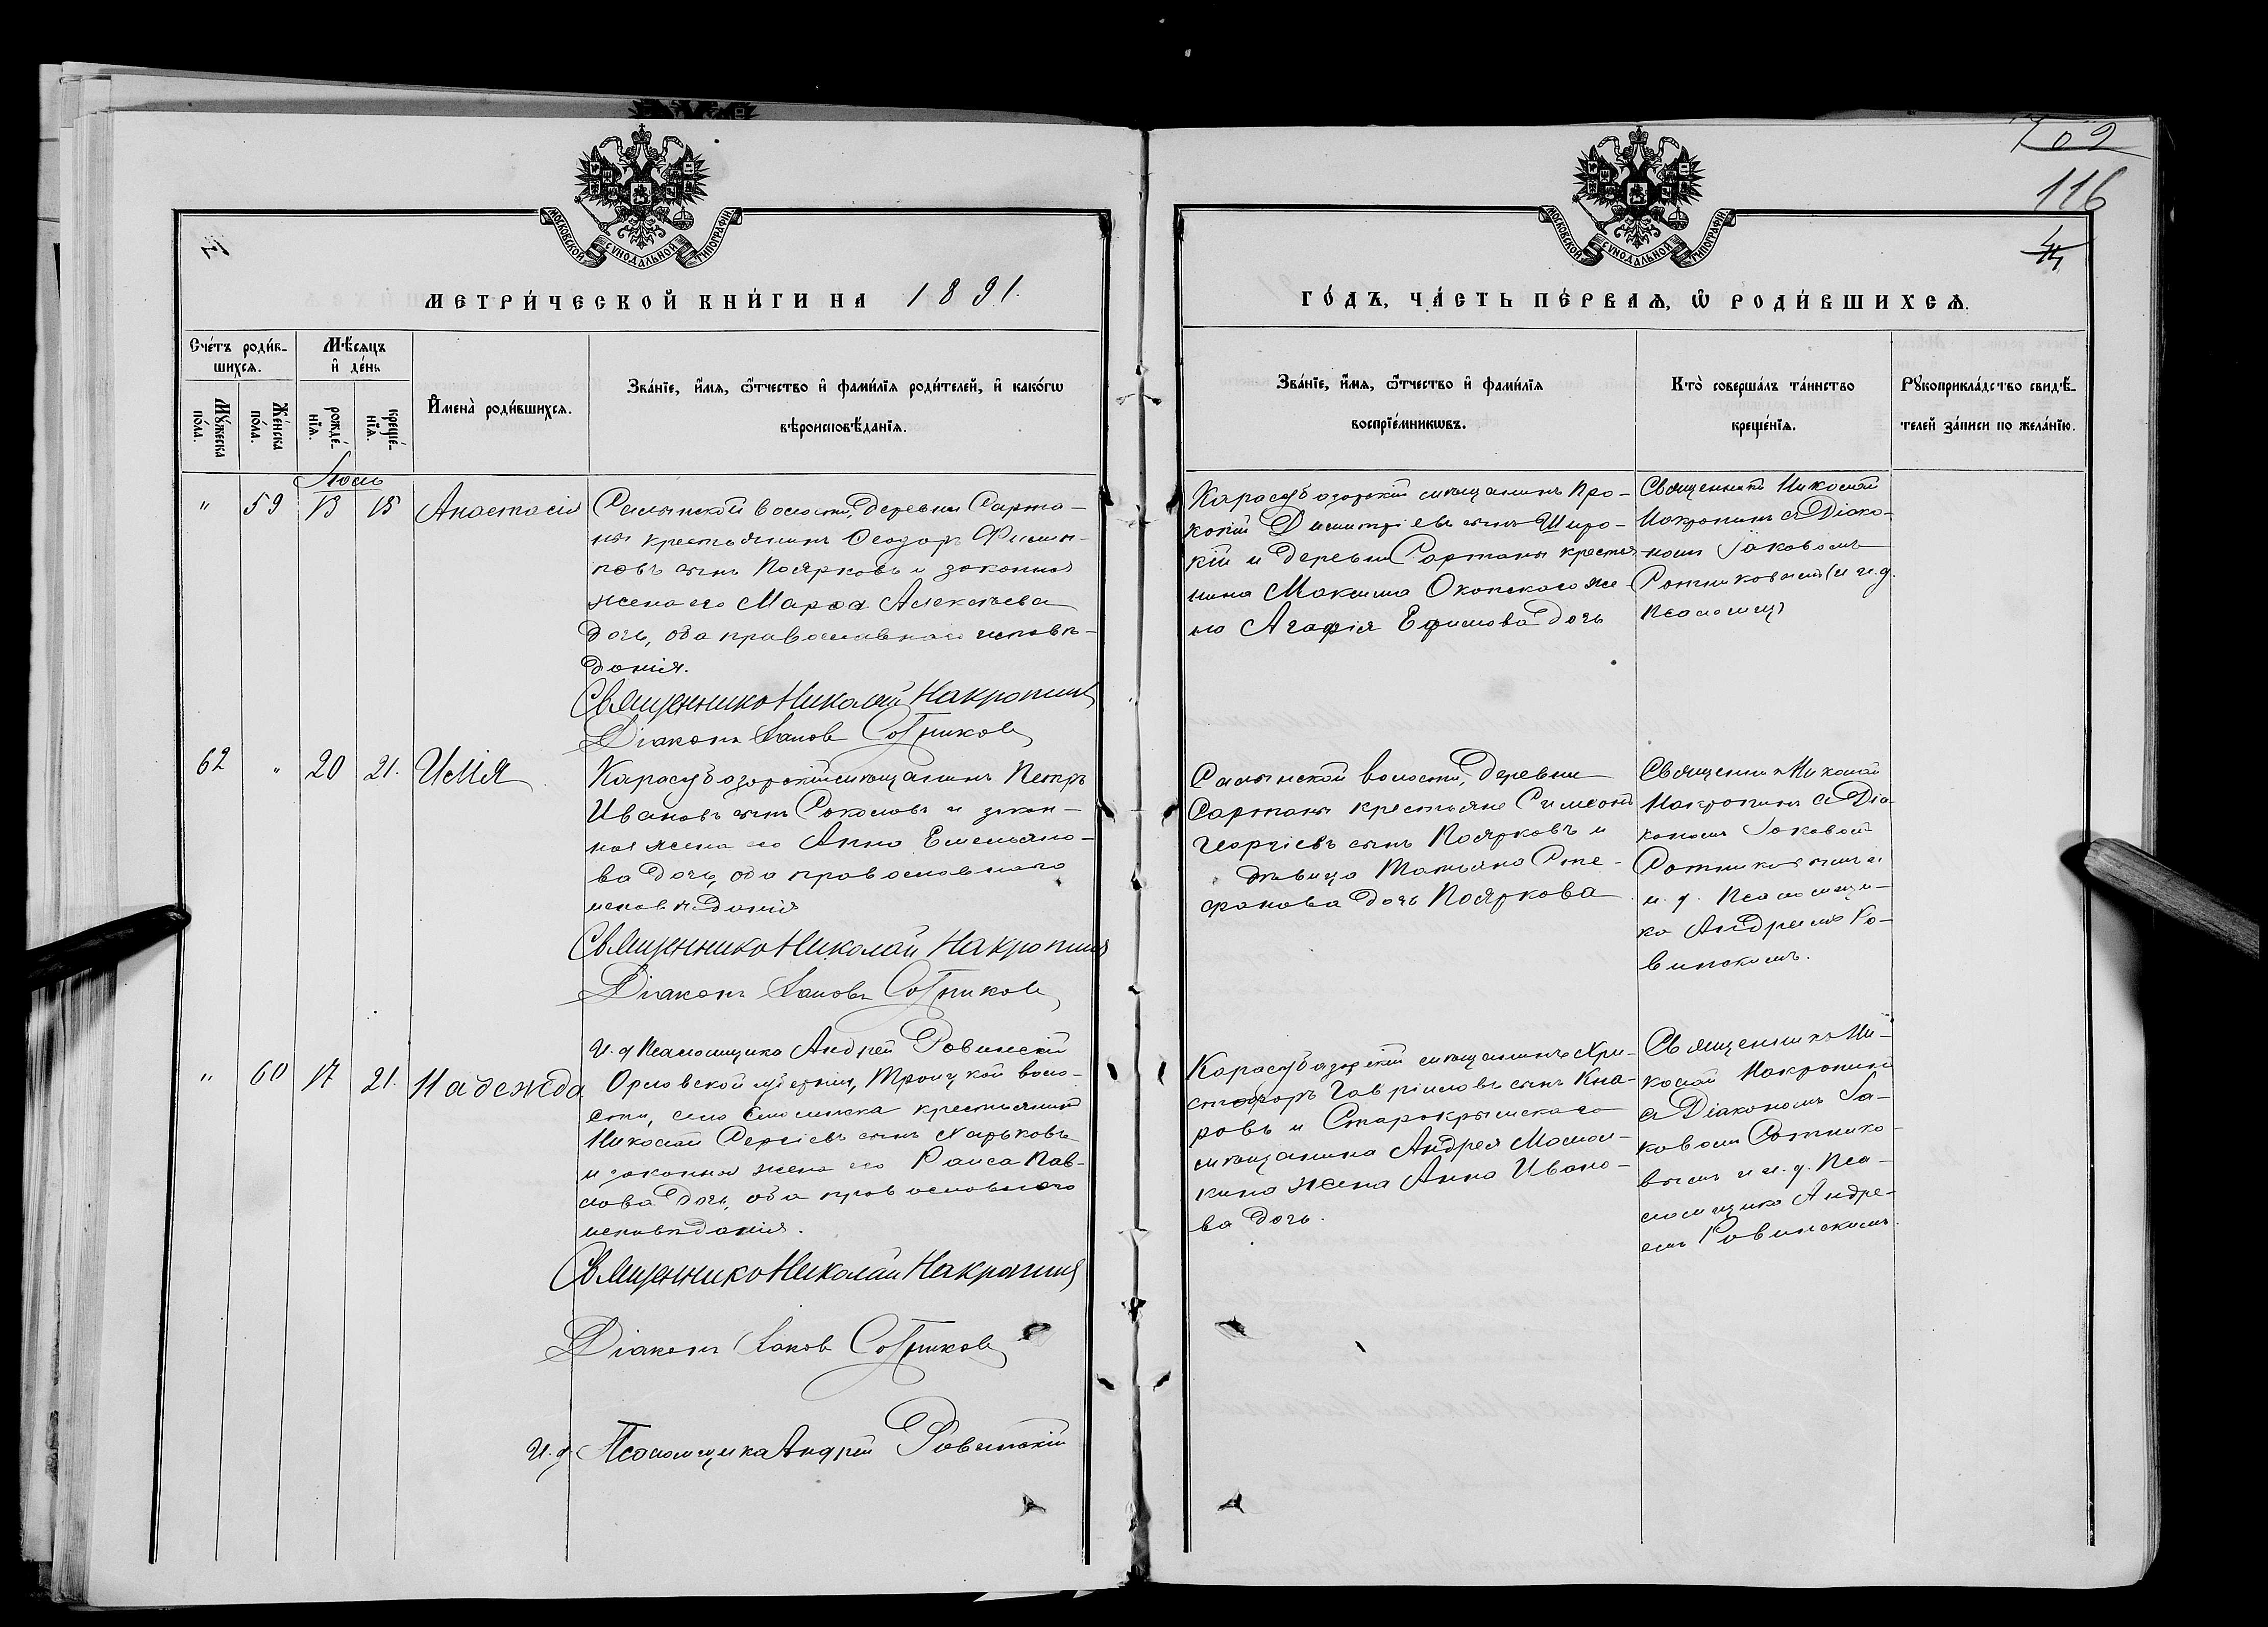 709
116
МОСКОВСКОЙ СѴНОДАЛЬНОЙ ТИПОГРАФІИ
МОСКОВСКОЙ СѴНОДАЛЬНОЙ ТИПОГРАФІИ
МЕТРИ́ЧЕСКОЙ КНИ́ГИ НА 1891.
ГО́ДЪ, ЧА́СТЬ ПЕ́РВАѦ, Ѡ҆ РОДИ́ВШИХСѦ.
Сче́тъ роди́в-
шихсѧ.
Мꙋ́жеска
по́ла.
Же́нска
по́ла.
Мѣ́сѧцъ
и҆ де́нь
рожде́-
нїѧ.
креще́-
нїѧ.
И҆мена̀ роди́вшихсѧ.
Зва́нїе, и҆́мѧ, ѻ҆́тчество и҆ фами́лїѧ роди́телей, и҆ како́гѡ
вѣроисповѣ́данїѧ.
Зва́нїе, и҆́мѧ, ѻ҆́тчество и҆ фами́лїѧ
воспрїе́мникѡвъ.
Кто̀ соверша́лъ та́инство
креще́нїѧ.
Рꙋкоприкла́дство свидѣ́-
телей за́писи по жела́нїю.
" 59 13 15 Анастасія
Салынской волости, деревни Сарта-
ны крестьянинъ Ѳеодоръ Филип-
повъ сынъ Поярковъ и законная
жена его Марѳа Алексѣева
дочь, оба православнаго исповѣ-
данія.
Священникъ Николай Накропинъ
Діаконъ Іаковъ Сотниковъ
Карасубазарскій мѣщанинъ Про-
копій Димитріевъ сынъ Широ-
кій и деревни Сартаны крестья-
нина Максима Окопскаго же-
на Агафія Ефимова дочь
Священникъ Николай
Накропинъ съ Діако-
номъ Іаковомъ
Сотниковымъ и и. д.
псаломщ
62 " 20 21. Илія
Карасубазарскій мѣщанинъ Петръ
Ивановъ сынъ Соколовъ и закон-
ная жена его Анна Емельяно-
ва дочь, оба православнаго
исповѣданія
Священникъ Николай Накропинъ
Діаконъ Іаковъ Сотниковъ
И. д Псаломщика Андрей Ровинскій
Салынской волости, деревни
Сартаны крестьяне Симеонъ
Георгіевъ сынъ Поярковъ и
дѣвица Татьяна Сте-
фанова дочь Пояркова
Священникъ Николай
Накропинъ съ Діа-
кономъ Іаковомъ
Сотниковымъ и
и. д. Псаломщи-
ка Андреемъ Ро-
винскимъ.
" 60 17 21. Надежда
Орловской губерніи, Троицкой воло-
сти, села крестьянинъ
Николай Сергіевъ сынъ Харьковъ
и законная жена его Раиса Пав-
лова дочь, оба православнаго
исповѣданія.
Священникъ Николай Накропинъ
Діаконъ Іаковъ Сотниковъ
И. д. Псаломщика Андрей Ровинскій
Карасубазарскій мѣщанинъ Хри-
стофоръ Гавріиловъ сынъ Кна-
ровъ и Старокрымскаго
мѣщанина Андрея Мамал-
кина жена Анна Ивано-
ва дочь.
Священникъ Ни-
колай Накропинъ
съ Діакономъ Іа-
ковомъ Сотнико-
вымъ и и. д. Пса-
ломщика Андре-
емъ Ровинскимъ.